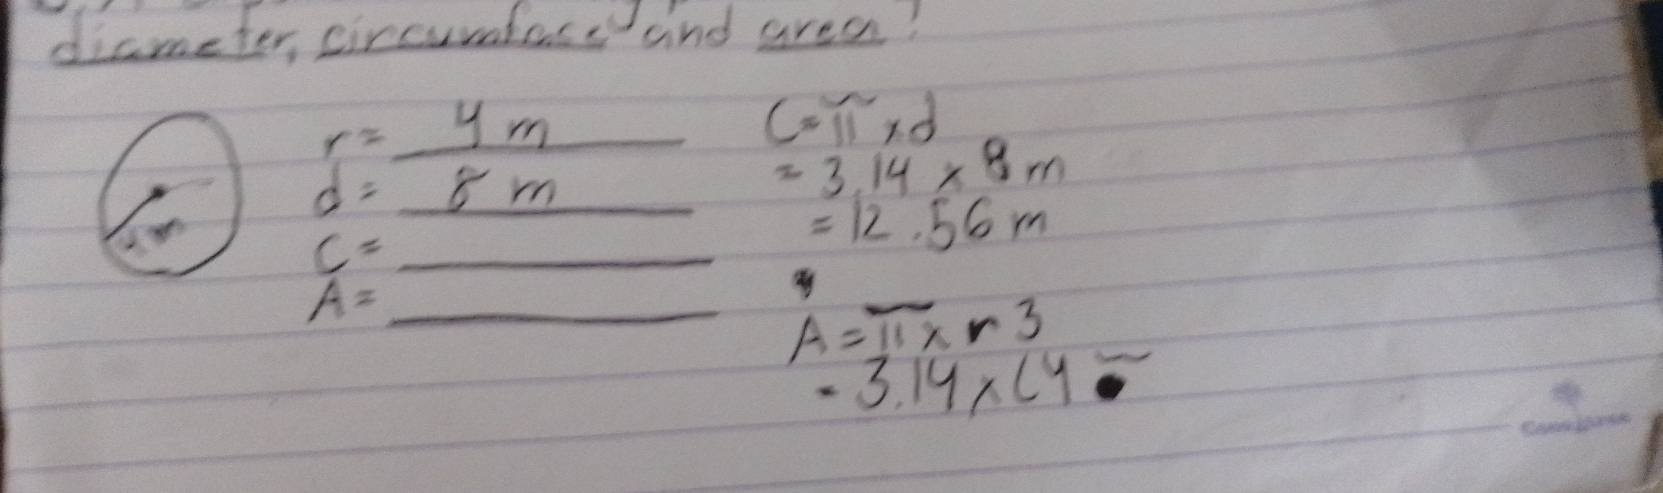 diameter, circumface and area!
4 m
r = 4 m
d = 8 m
C =
A =
C = π x d
= 3.14 x 8 m
= 12.56 m
A = π x r 3
= 3.14 x (4